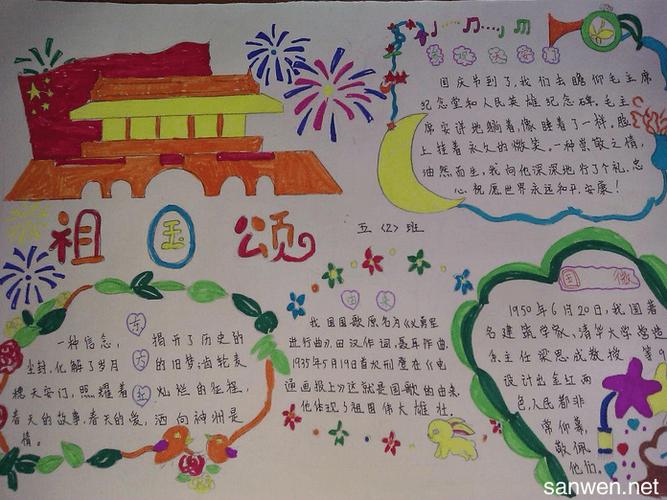 国庆节到了,我们去瞻仰毛主席
纪念堂和人民英雄纪念碑。毛主
席安详地躺着,像睡着了一样。脸
上挂着永久的微笑,一种崇敬之情,
油然而生,我向他深深地行了个礼,忠
心祝愿世界永远和平,安康!
祖国颂
五〈2〉班
东方红
一种信念,揭开了历史的
尘封,化解了岁月的旧梦;齿轮麦
穗天安门,照耀着灿烂的征程,
春天的故事,春天的爱,洒向神州是
情。
由来
我国国歌原名为《义勇军
进行曲》,田汉作词,聂耳作曲。
1935年5月19日首次刊登在《电
通画报上》这就是国歌的由来。
他体现了祖国伟大雄壮.
国徽
1950年6月20日,我国著
名建筑学家,清华大学营造
系主任梁思成教授
设计出金红两
色,人民都非
常仰慕
敬佩
他们。
sanwen.net